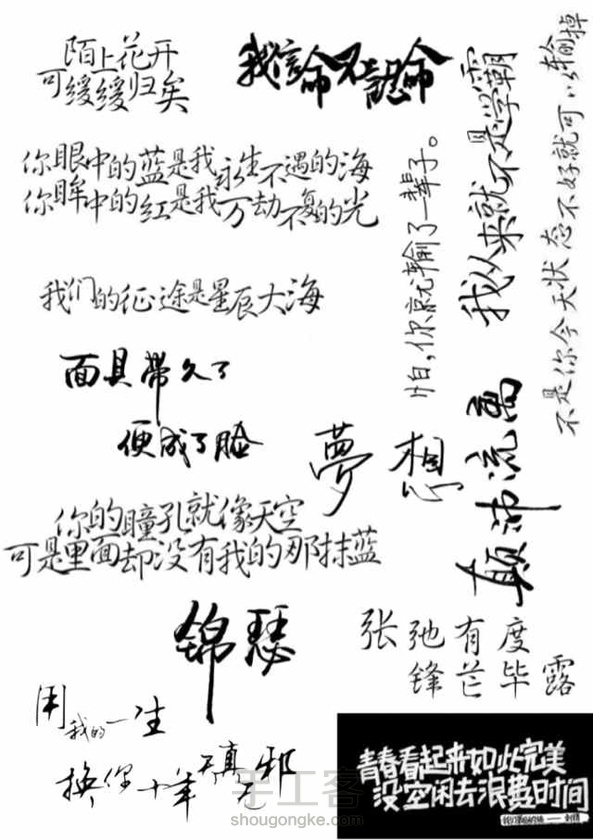 陌上花开
可缓缓归矣
我信命不认命
你眼中的蓝是我永生不遇的海
你眸中的红是我万劫不复的光
我们的征途是星辰大海
面具带久了
便成了脸
怕,你就输了一辈子。
我从来就不是学霸
不是你今天状态不好就可以输掉
梦想
颠沛流离
你的瞳孔就像天空
可是里面却没有我的那抹蓝
锦瑟
张弛有度
锋芒毕露
用我的一生
换你十年天真无邪
青春看起来如此完美
没空闲去浪费时间
手工客
shougongke.com